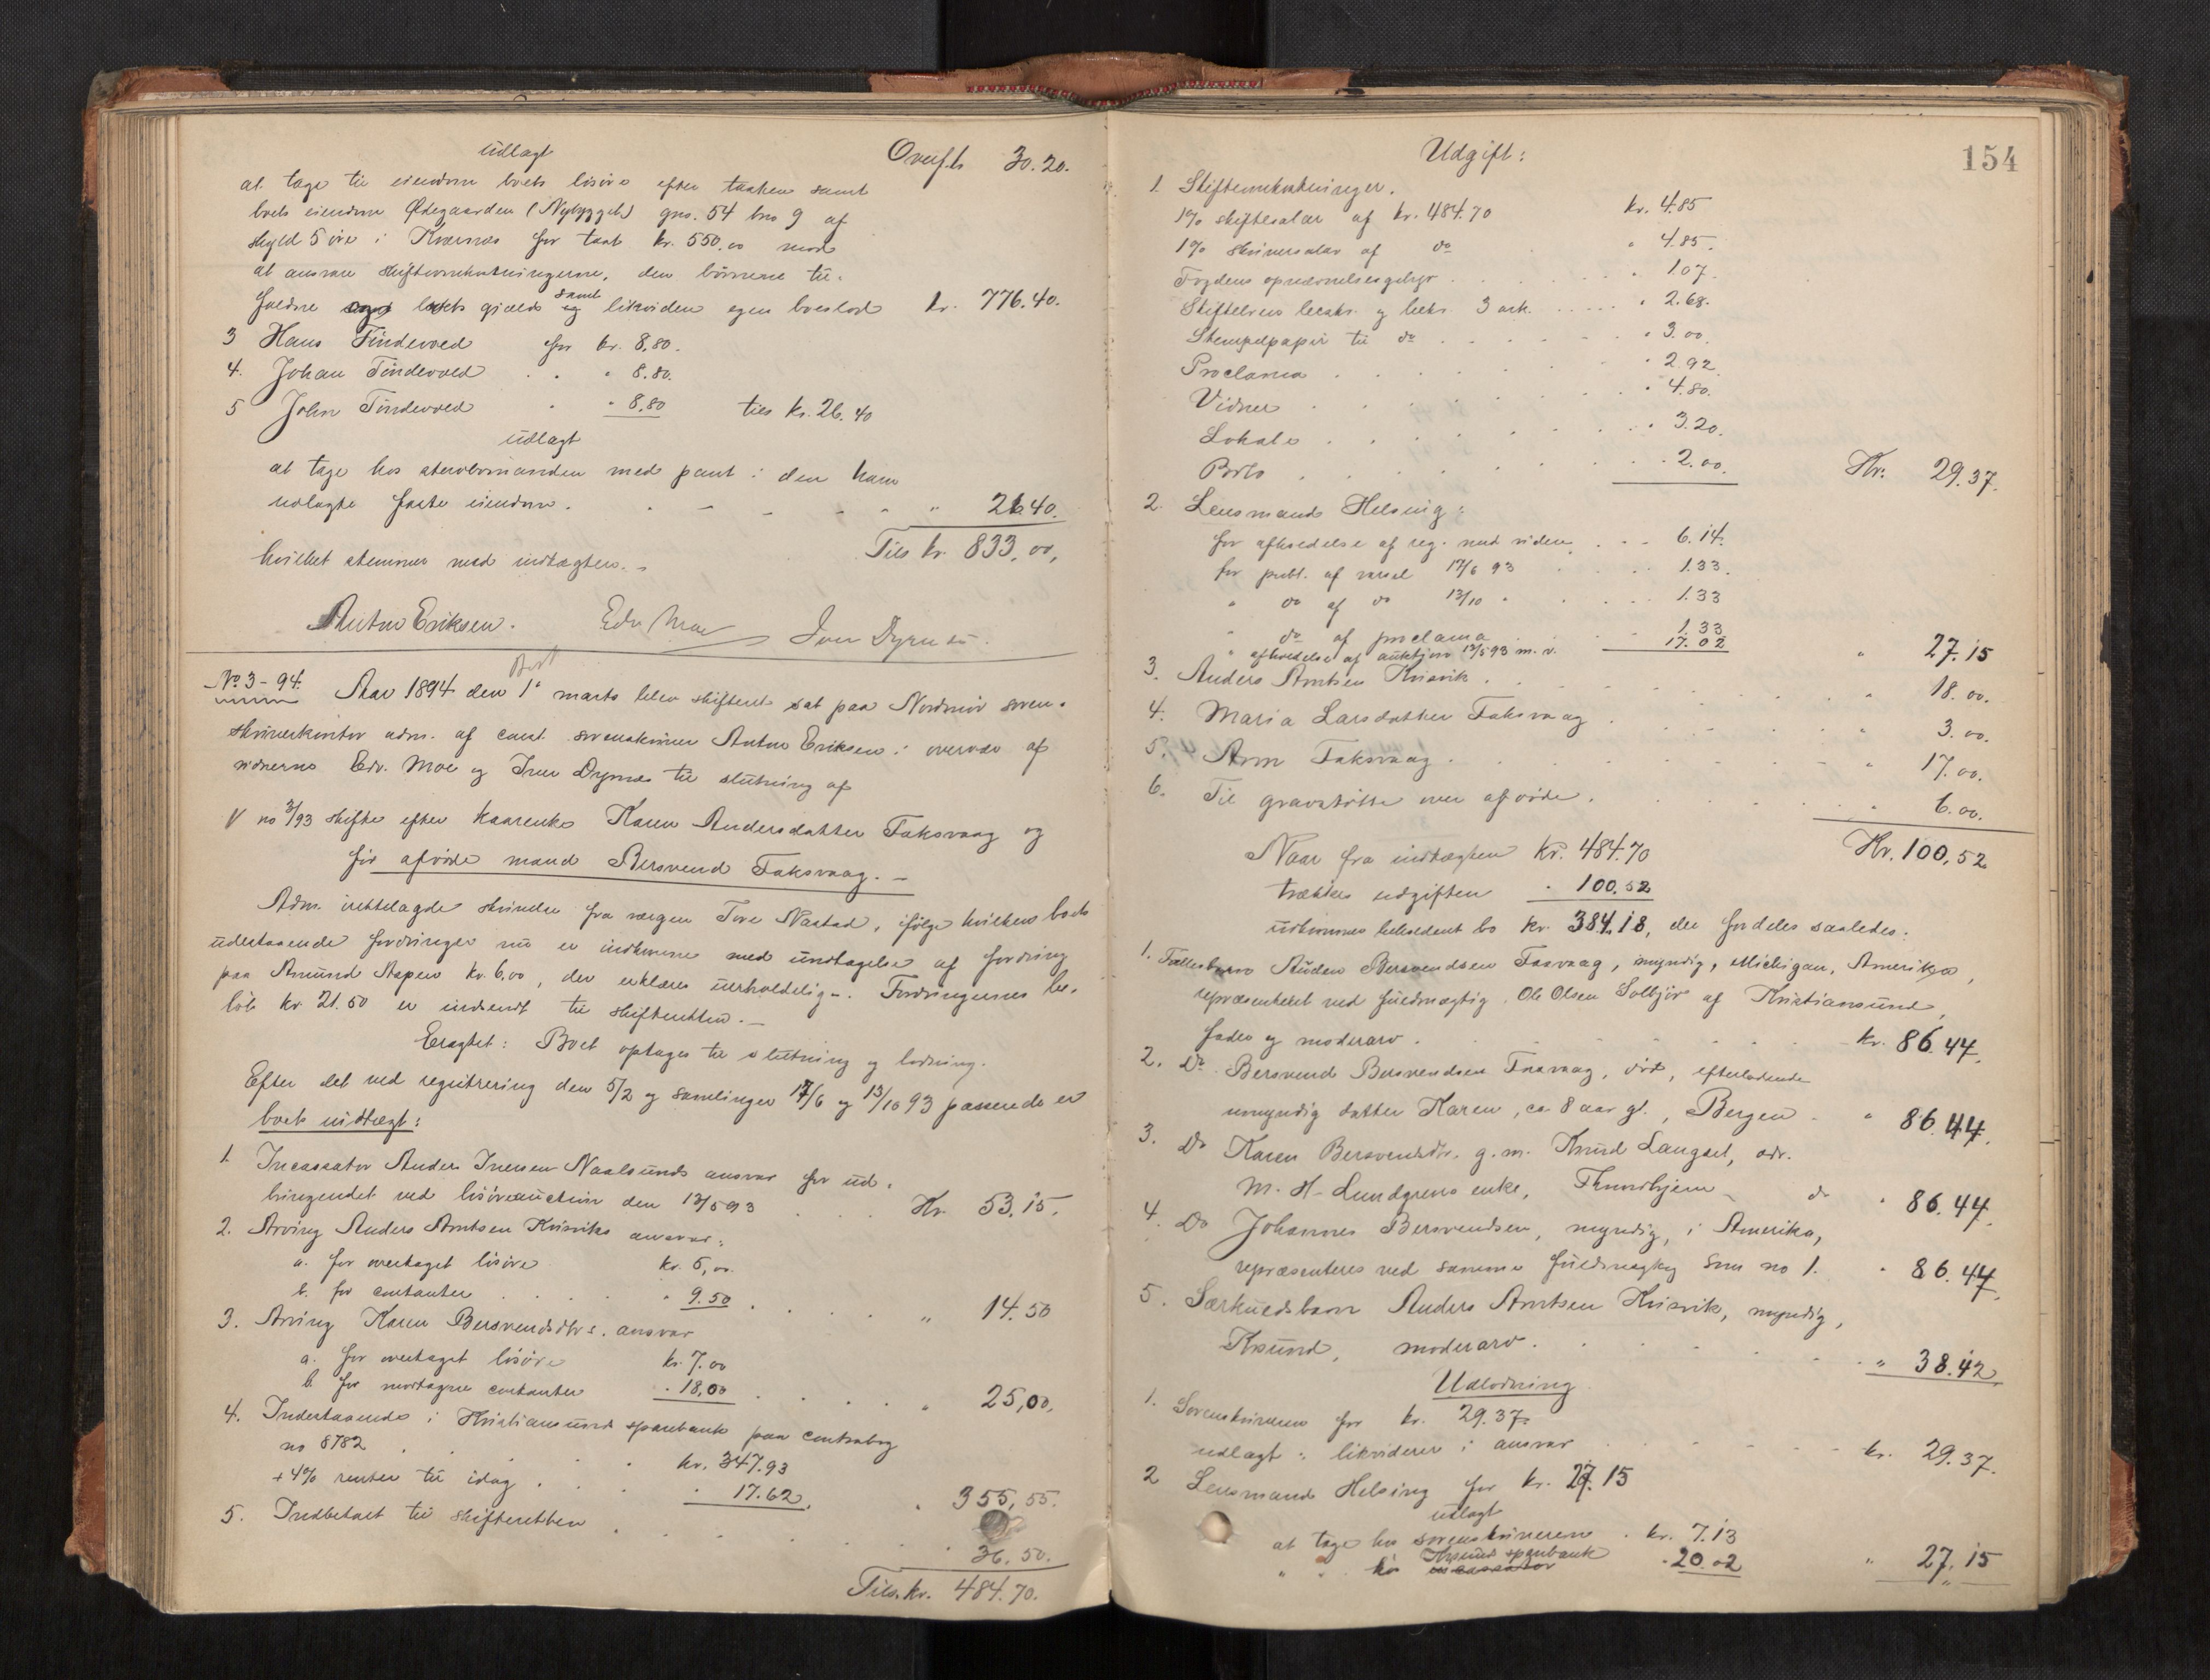 Overf. kr 30.20.
udlagt
at tage til eiendom boets løsøre efter taxten samt
boets eiendom Ødegaarden (Nybygget) gno. 54 bno 9 af
skyld 5 øre i Kvernes for taxt kr. 550.00 mod
at ansvare skifteomkostningerne, den børnene til-
faldne boets gjæld samt likviden egen boeslod kr. 776.40.
3 Hans Tindevold for kr. 8,80.
4. Johan Tindevold . . " 8.80.
5 John Tindevold " " 8,80 tils kr. 26.40
udlagt
at tage hos sterbomanden med pant i den ham
udlagte faste eiendom. " 26.40.
Tils kr. 833,00,
hvilket stemmer med indtægten. -
Anton Eriksen. Edv Moe Iver Dyrnes.
No 3-94. Aar 1894 den 1ste marts blev skifteret sat paa Nordmør soren-
skriverkontor adm. af const. sorenskriver Anton Eriksen i overvær af
vidnerne Edv. Moe og Iver Dyrnes til slutning af
V no 3/93 skifte efter kaarenke Karen Andersdatter Faksvaag og
før afdøde mand Bersvend Faksvaag. -
Adm. irettelagde skrivelse fra værgen Tore Nastad, ifølge hvilken boets
udestaaende fordringer nu er indkomne med undtagelse af fordring
paa Amund Aspen kr. 6,00, der erklæres uerholdelig. Fordringernes be-
løb kr. 21.50 er indsendt til skifteretten. -
Eragtet: Boet optages til slutning og lodning.
Efter det ved registrering den 5/2 og samlinger 17/6 og 13/10 93 passerede er
boets indtægt:
1. Incassator Anders Iversen Naalsunds ansvar for ud-
bringendet ved løsøreauction den 13/5 93 . . . Kr. 53.15.
2. Arving Anders Arntsen Kvisviks ansvar:
a. for overtaget løsøre kr. 5,00.
b. for contanter . . . . " 9.50 . . . . " 14.50
3. Arving Karen Bersvendsdtrs. ansvar
a. for overtaget løsøre kr. 7.00
b. for modtagne contanter " 18,00 . . . . " 25,00,
4. Indestaaende i Kristiansund sparebank paa contrabog
no 8782 . . . . kr. 347.93
+ 4% renter til idag . . . " 17.62. " 355,55.
5. Indbetalt til skifteretten . . . . . . 36.50.
Tils. kr. 484.70.
154
Udgift:
1. Skifteomkostninger.
1% skiftesalær af kr. 484.70 kr. 4.85
1% skriversalær af do " 4.85.
Fogdens opnævnelsesgebyr . . . . . " 1.07.
Skiftebrevs beskr. og bekr. 3 ark. . . . . " 2.68.
Stempelpapir til do . . . . . . " 3.00.
Proclama . . . . . . " 2.92.
Vidner . . . . . . " 4.80.
Lokale . . . . . . . " 3.20.
Porto . . . . . . . 2.00. Kr. 29.37.
2. Lensmand Helsing:
for afholdelse af reg. med viden . . - 6.14.
for publ. af varsel 17/6 93 . . . 1.33.
" do af do 13/10 " . . . . 1.33
" do af proclama . . . 1.33
" afholdelse af auktion 13/5 93 m.v. 17.02 " 27.15
3. Anders Arntsen Kvisvik . . . . . . " 18.00.
4. Maria Larsdatter Faksvaag . . . . . " 3.00.
5. Arn Faksvaag . . . . . . . " 17.00.
6. Til gravstøtte over afdøde. . . . . . " 6.00.
Kr. 100,52
Naar fra indtægten kr. 484.70
trækkes udgiften " 100.52
udkommer beholdent bo kr. 384.18, der fordeles saaledes:
1. Fællesbarn Auden Bersvendsen Faxvaag, myndig, Michigan, Amerika,
repræsenteret ved fuldmægtig Ole Olsen Solbjør af Kristiansund,
fader og moderarv . . . . . . kr. 86.44.
2. Do Bersvend Bersvendsen Faxvaag, død, efterladende
umyndig datter Karen, ca 8 aar gl., Bergen . " 86.44.
3. Do Karen Bersvendsdtr. g.m. Knud Langset, adr.
M. H. Lundgrens enke, Throndhjem do " 86.44.
4. Do Johannes Bersvendsen, myndig, i Amerika,
repræsenteres ved samme fuldmægtig som no 1. " 86.44.
5. Særkuldsbarn Anders Arntsen Kvisvik, myndig,
Ksund, moderarv . . . . . . " 38.42
Udlodning
1. Sorenskriveren for kr. 29.37.
udlagt: likviderer i ansvar . . . . - kr. 29.37.
2 Lensmand Helsing for kr. 27.15
udlagt
at tage hos sorenskriveren . kr. 7.13
" " hos Ksunds sparebank " 20.02 " 27.15